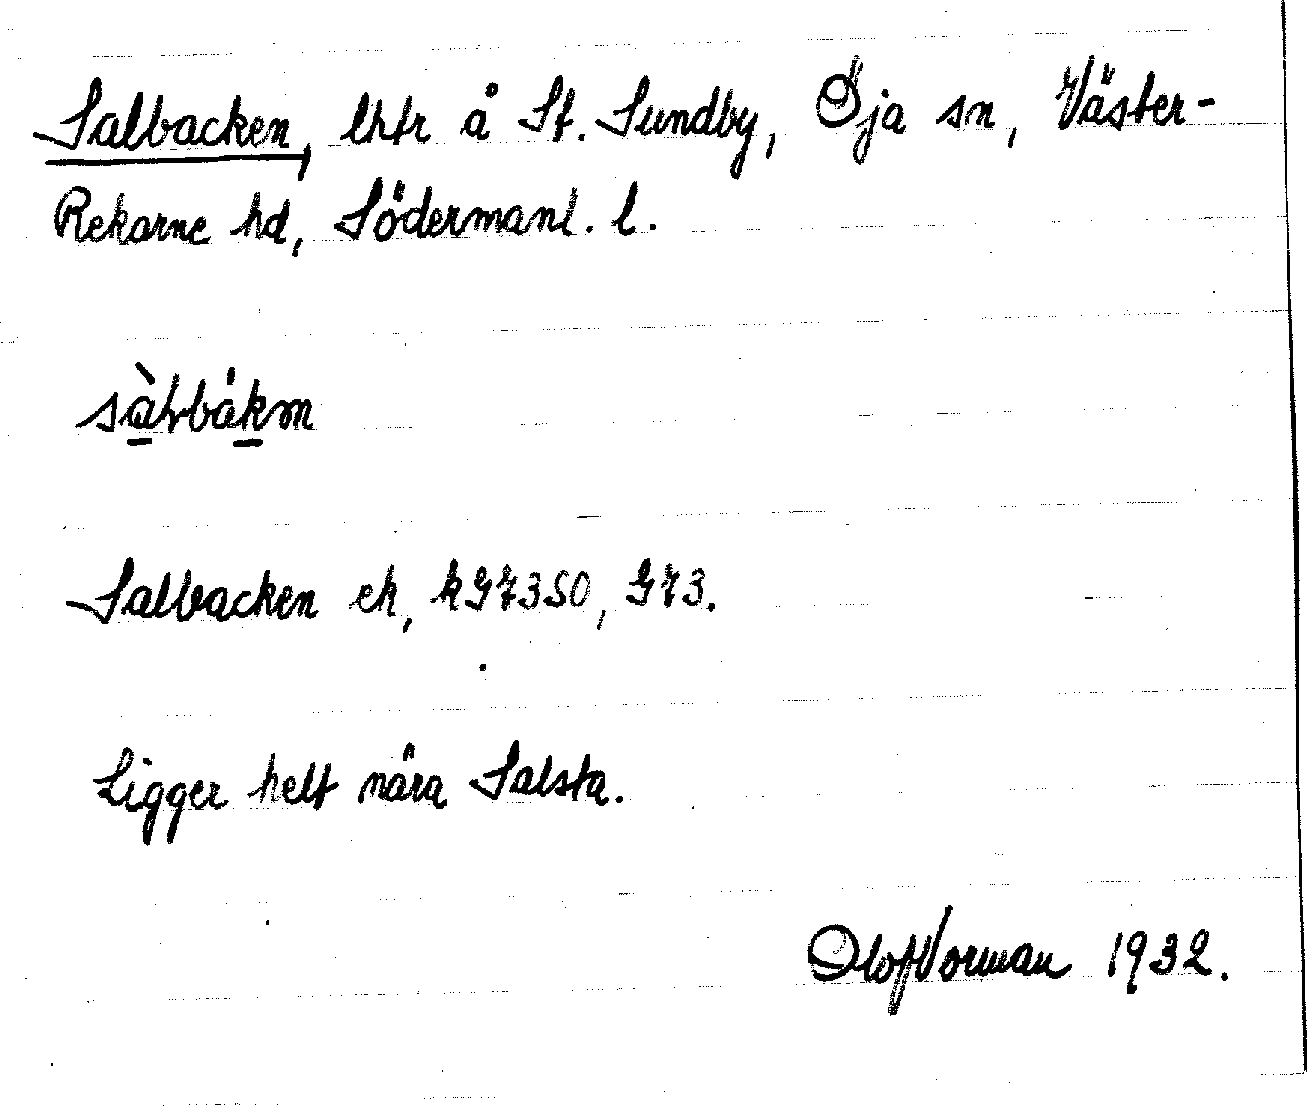 Salbacken, lhtr å St. Sundby, Öja sn, Väster-
Rekarne hd, Södermanl. l.
sàlbákm
Salbacken ek, kGF3SO, GF3.
Ligger helt nära Salsta.
Olof Vorman 1932.